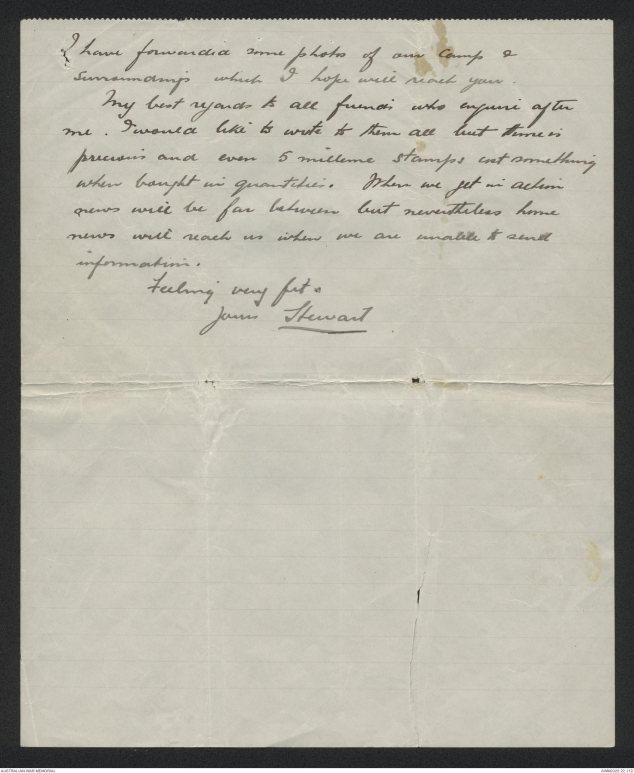 I have forwarded some photos of our Camp &
surroundings which I hope will reach you.
My best regards to all friends who enquire after
me. I would like to write to them all but time is
precious and even 5 milleme stamps cost something
when bought in quantities. When we get in action
news will be far between but nevertheless home
news will reach us when we are unable to send
information.
Feeling very fit.
Yours Stewart
AUSTRALIAN WAR MEMORIAL